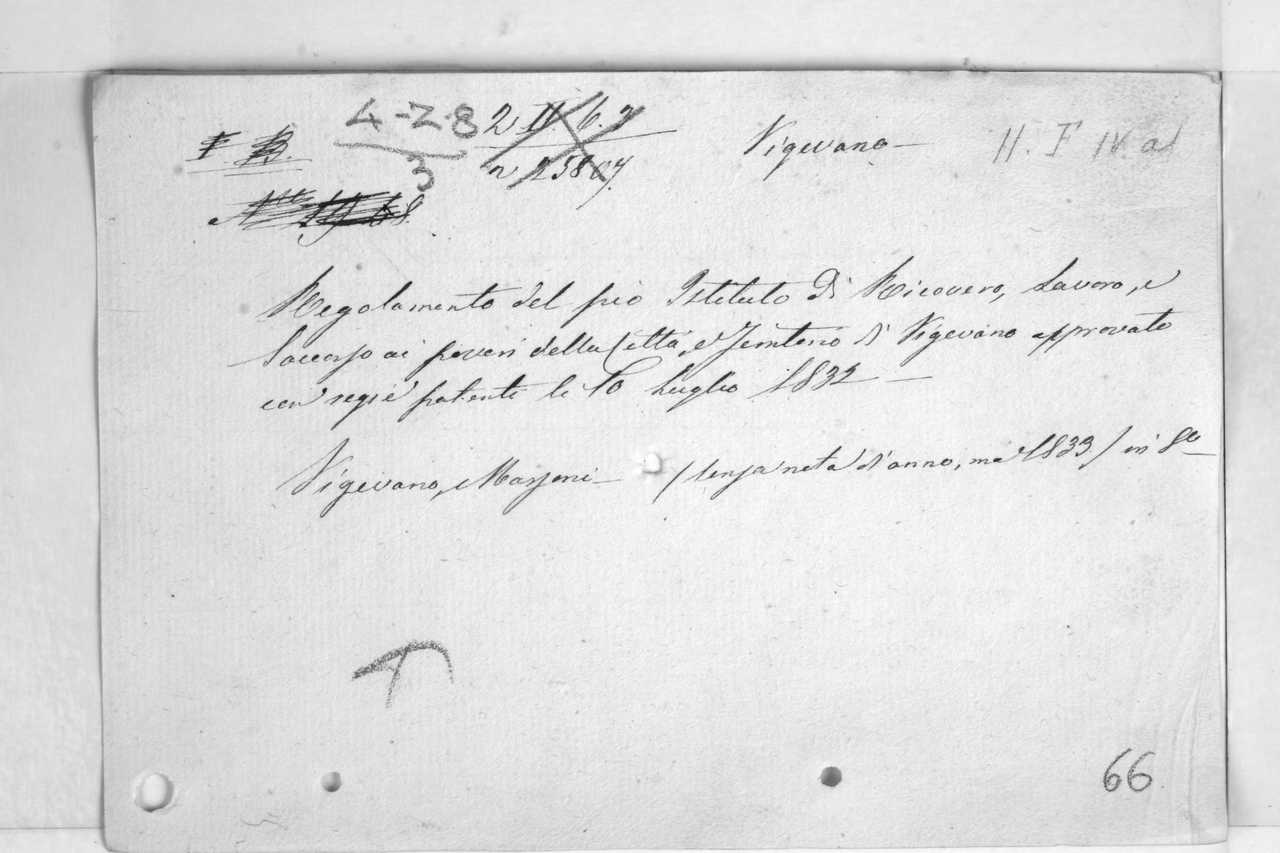 4-Z.8
3
2 25807.
Vigevano —
II. F IV a
Regolamento del pio Istituto di Ricovero, Lavoro, e
Soccorso ai poveri della Città, e Territorio di Vigevano approvato
con regie patenti li 10 Luglio 1832 —
Vigevano, Marzoni — (senza nota d'anno, ma 1833) in 8º —
66